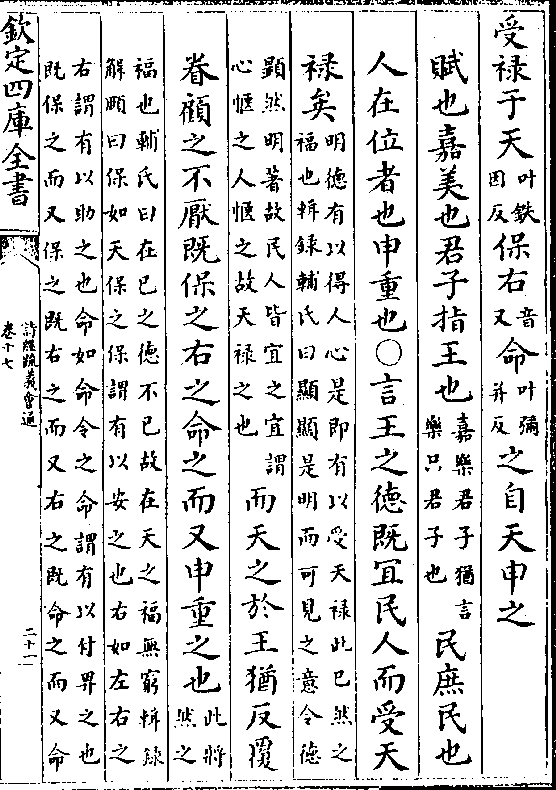 受禄于天叶鉄因反保右音又命叶彌并反之自天申之
賦也嘉美也君子指王也嘉樂君子猶言樂只君子也民庶民也
人在位者也申重也○言王之德既冝民人而受天
禄矣明德有以得人心是即有以受天禄此已然之
福也輯録輔氏曰顯顯是明而可見之意令德
顯然明著故民人皆宜之宜謂
心愜之人愜之故天禄之也而天之於王猶反覆
眷顧之不厭既保之右之命之而又申重之也此将然之
福也輔氏曰在已之德不已故在天之福無窮輯録
解頤曰保如天保之保謂有以安之也右如左右之
右謂有以助之也命如命令之命謂有以付畀之也
既保之而又保之既右之而又右之既命之而又命
欽定四庫全書
詩經疏義會通
卷十七
二十一